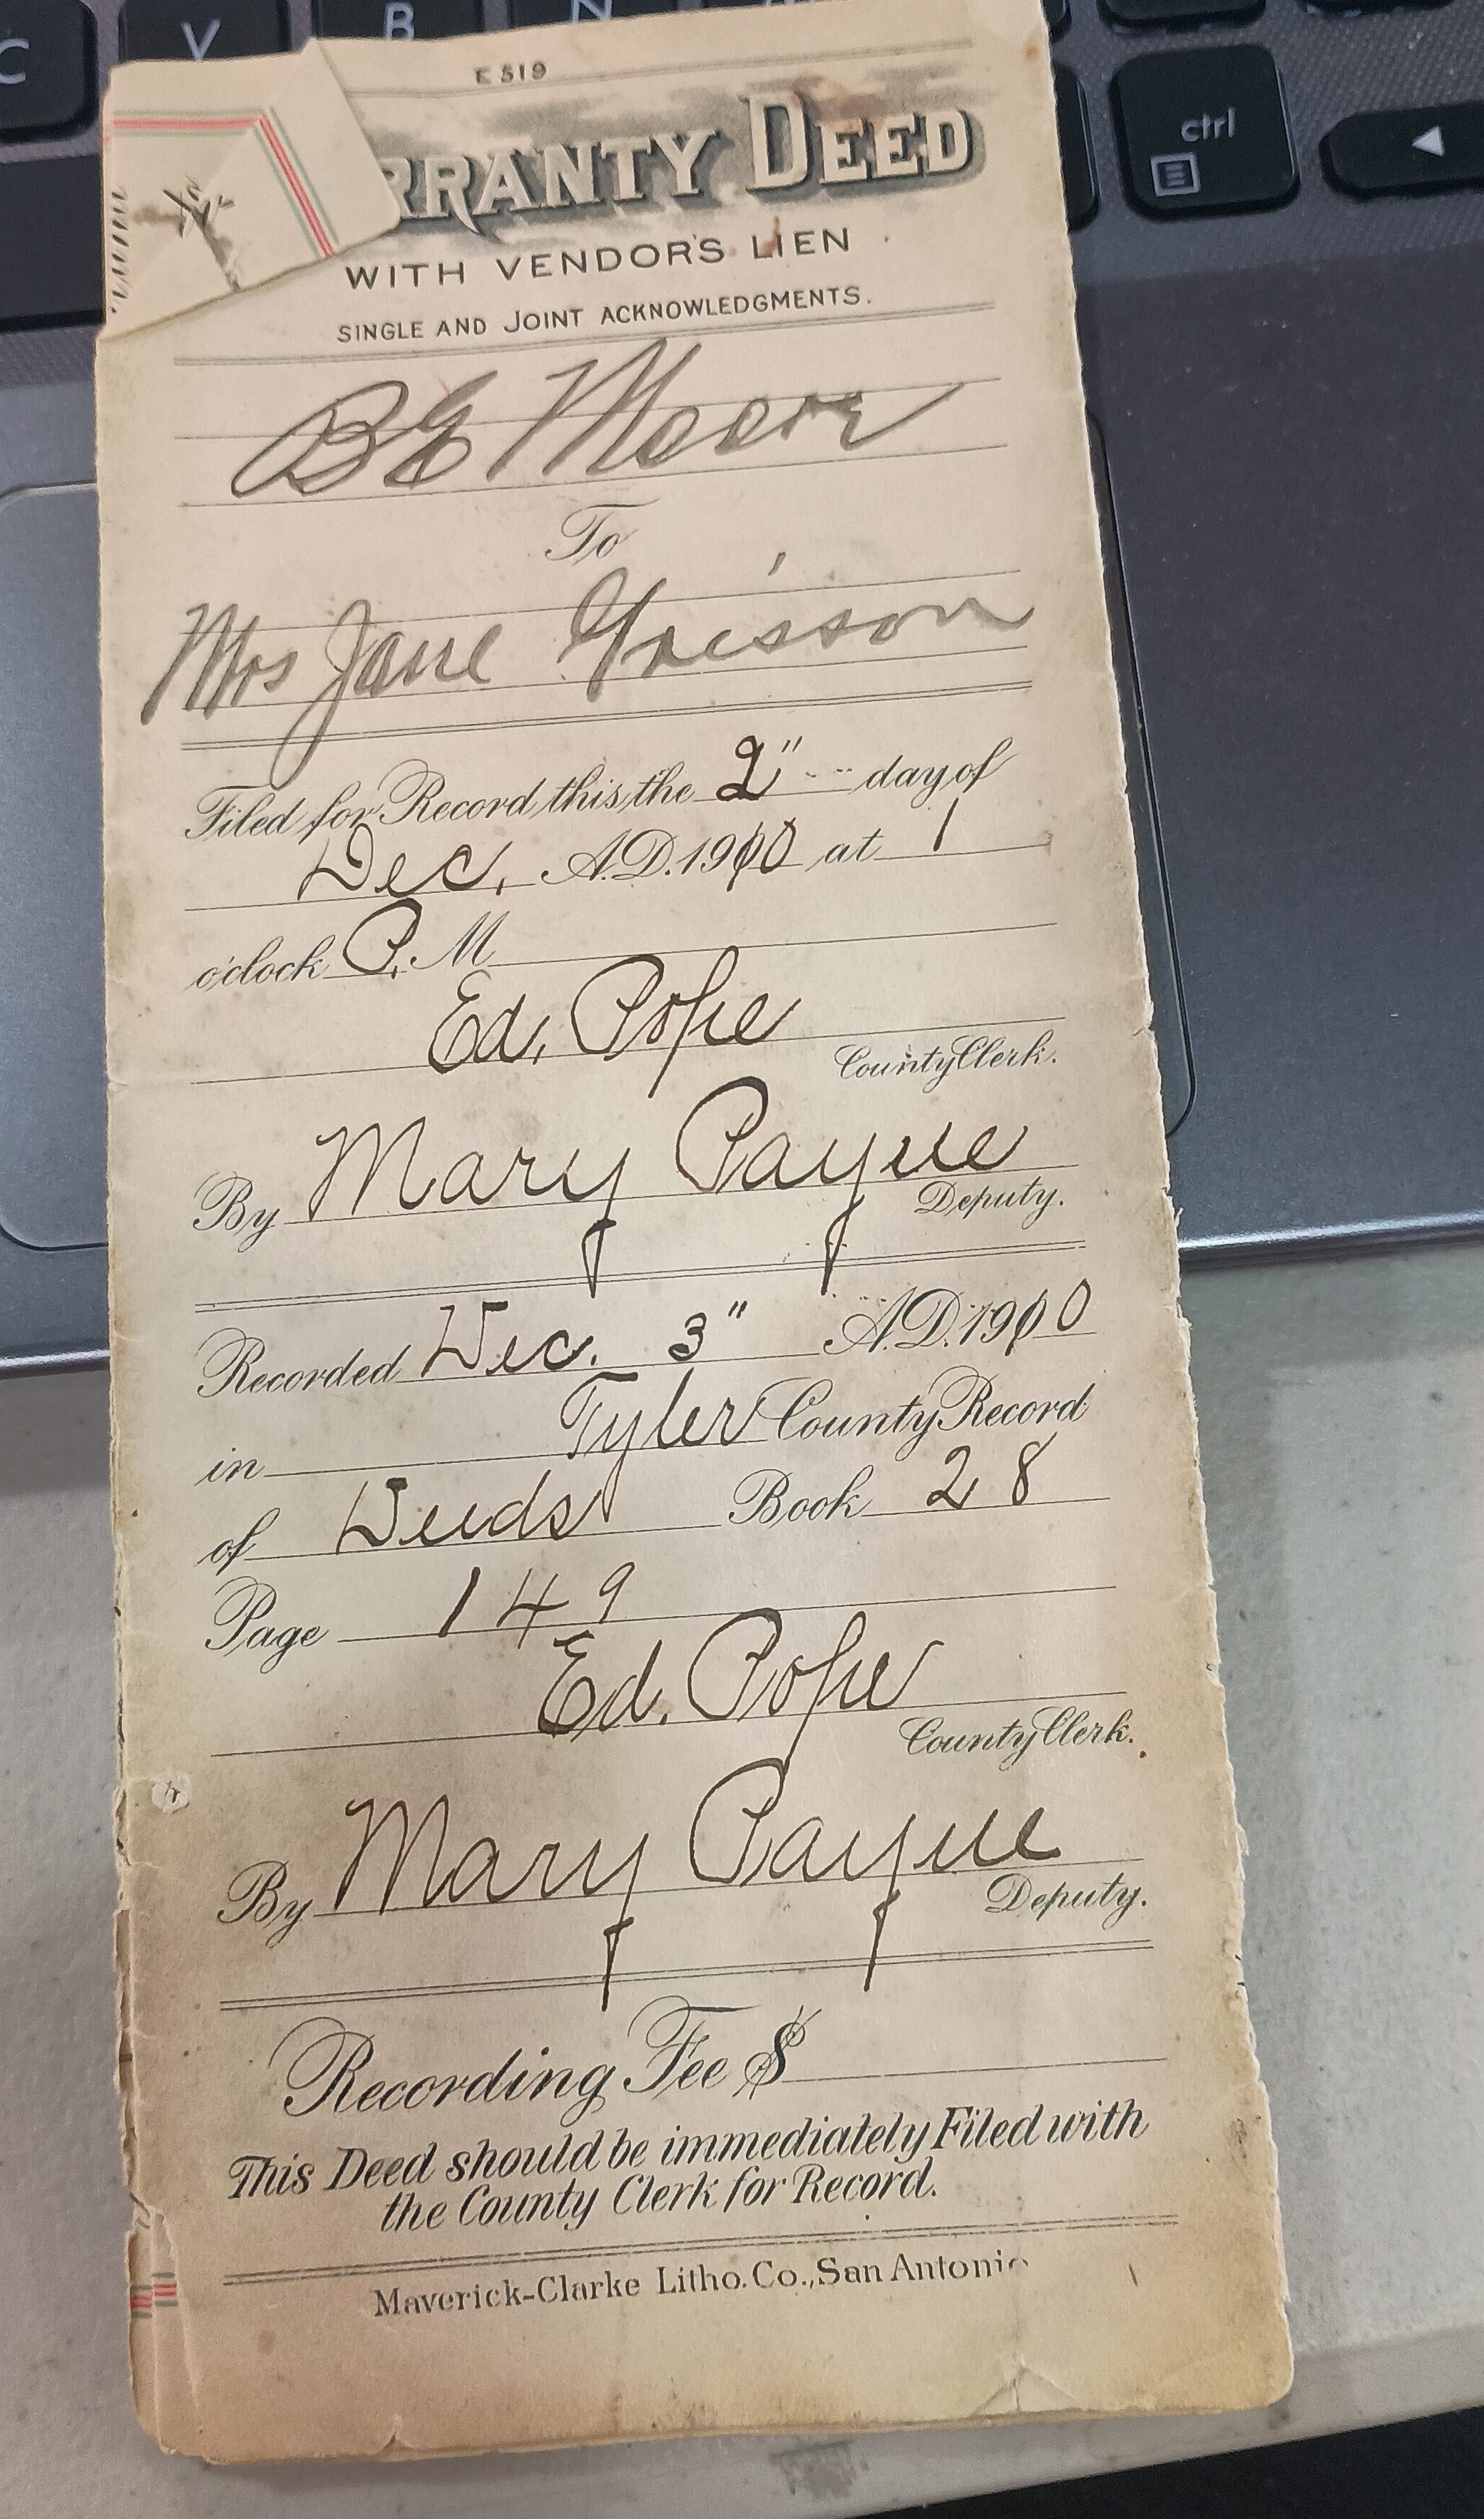 C V B N
ctrl
E 519
RRANTY DEED
WITH VENDOR'S LIEN
SINGLE AND JOINT ACKNOWLEDGMENTS.
B E Moore
To
Mrs Jane Grisson
Filed for Record this the 2" day of
Dec. A.D. 1900 at 1
o'clock P. M
Ed. Pope
County Clerk.
By Mary Payne
Deputy.
Recorded Dec. 3" A.D. 1900
in Tyler County Record
of Deeds Book 28
Page 149
Ed. Pope
County Clerk.
By Mary Payne
Deputy.
Recording Fee $
This Deed should be immediately Filed with
the County Clerk for Record.
Maverick-Clarke Litho. Co., San Antonio